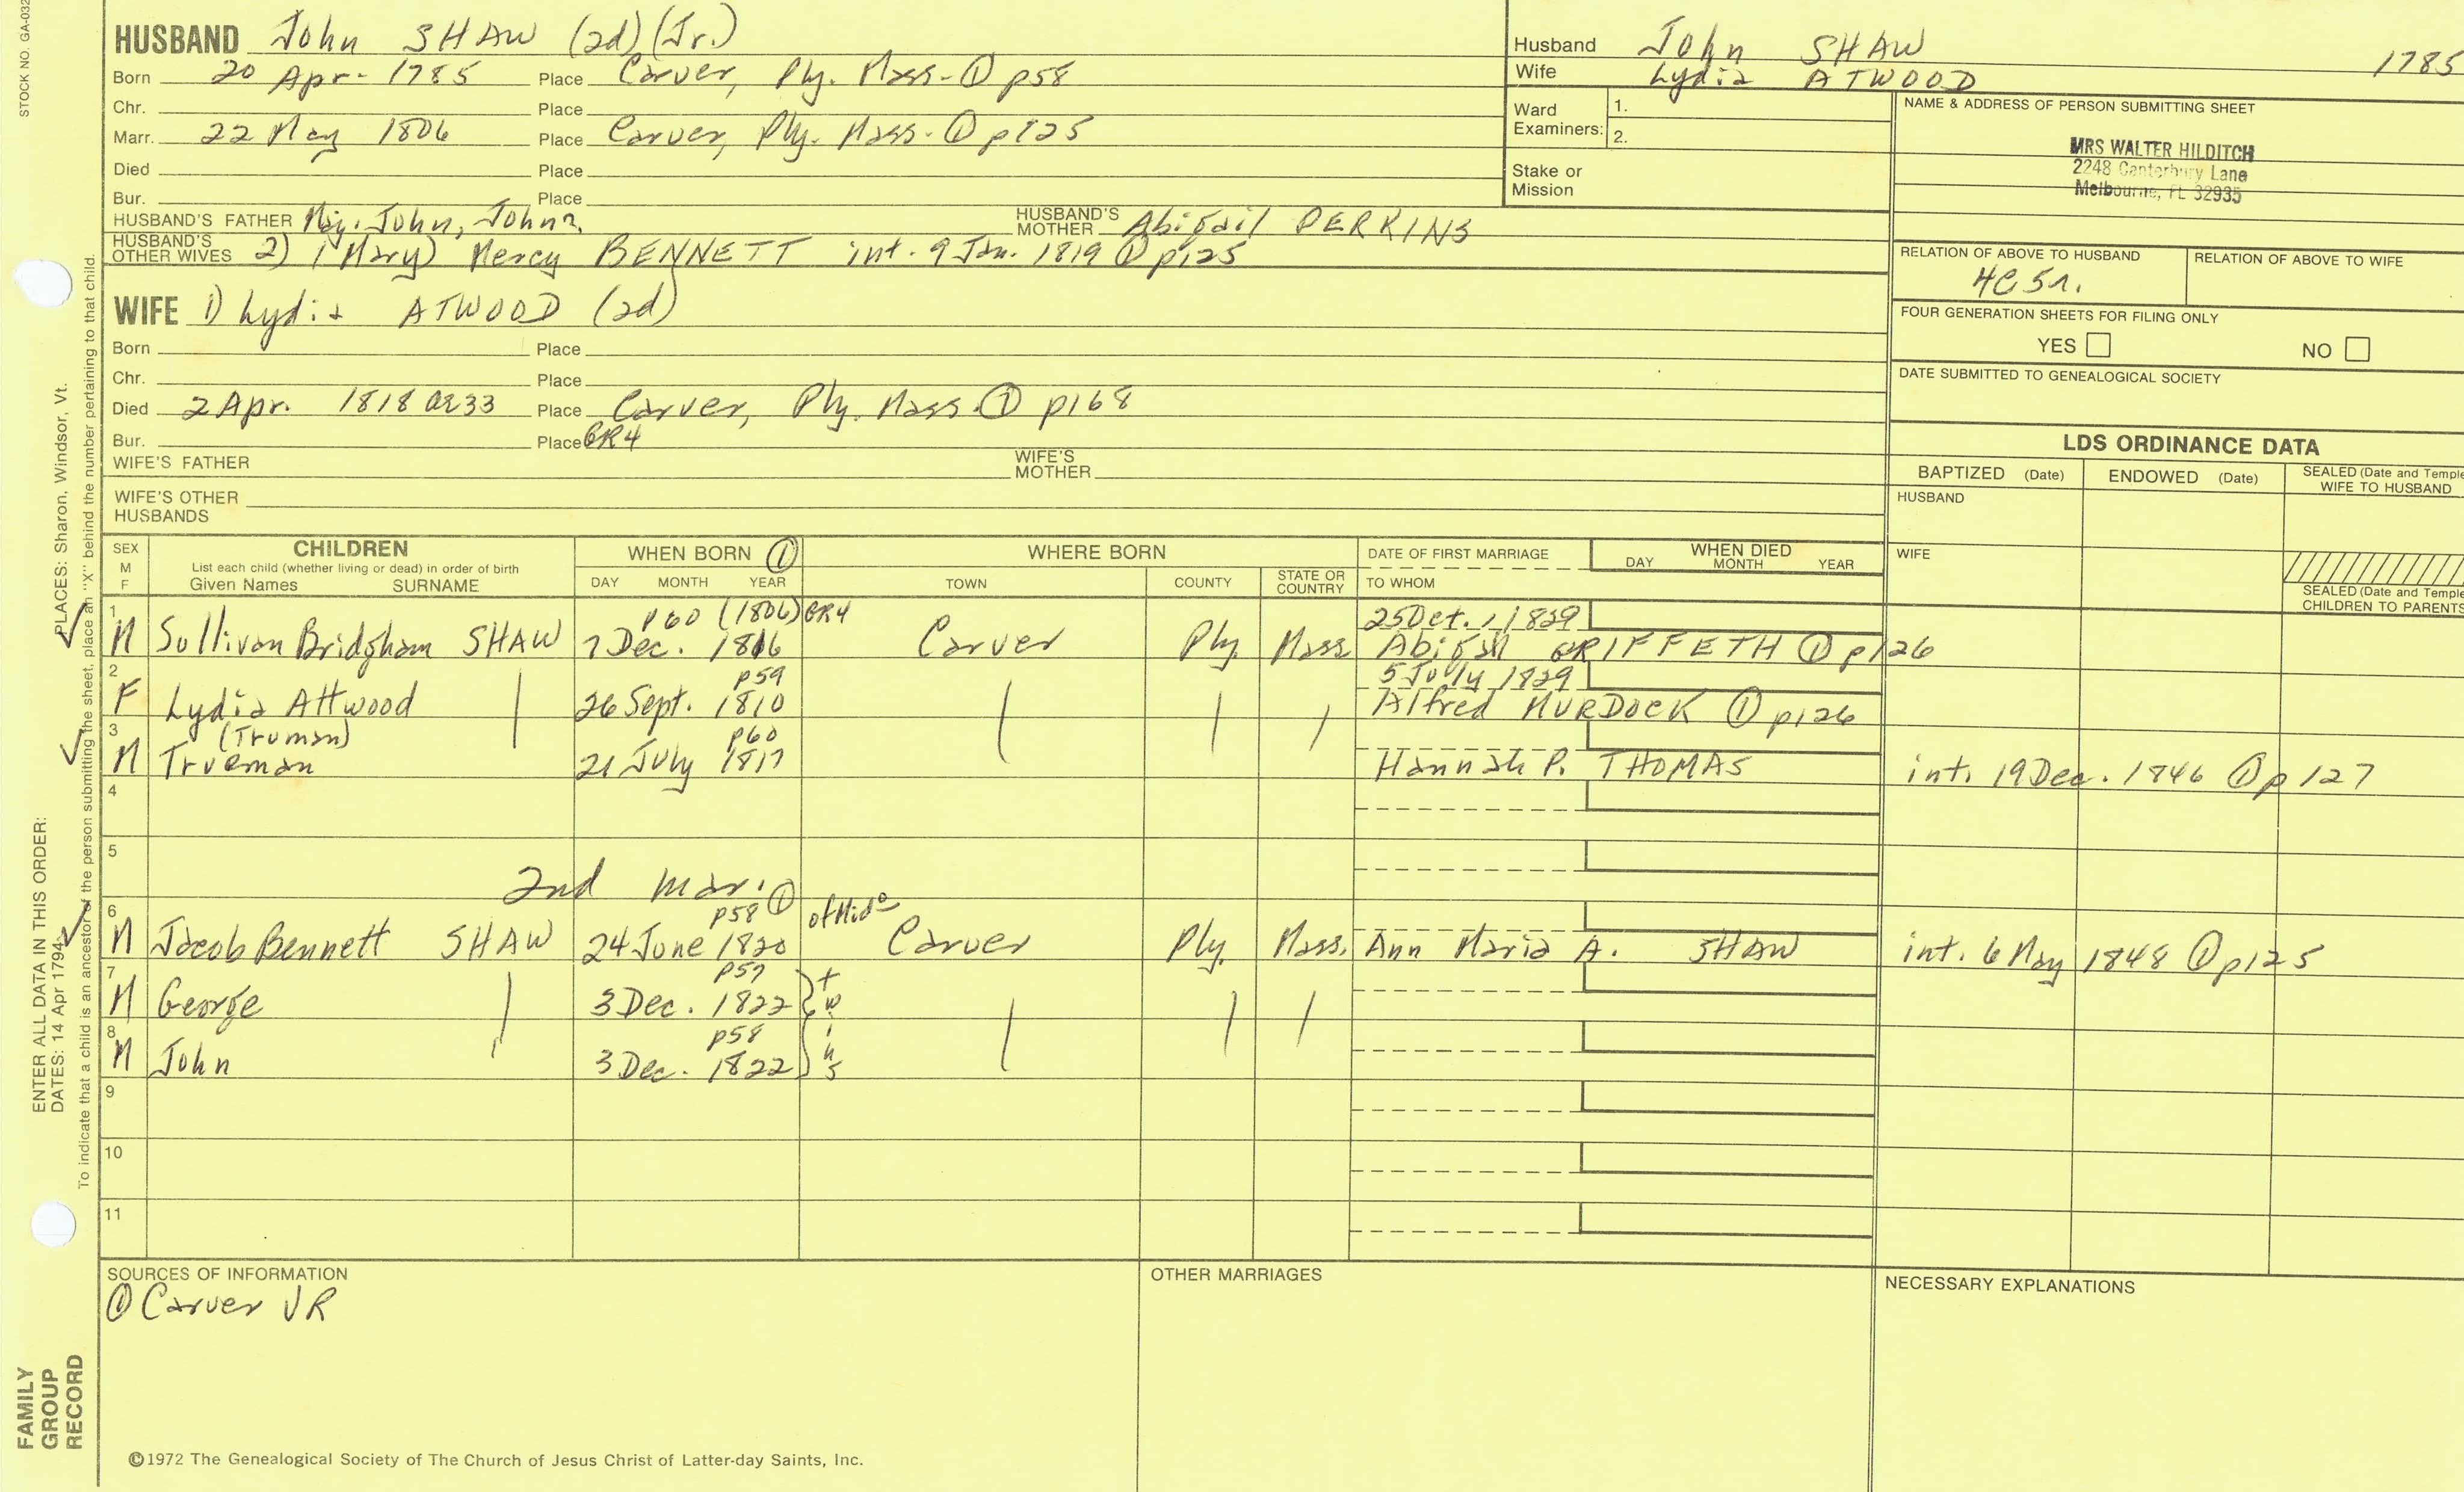 STOCK NO. GA-032
HUSBAND John SHAW (2d) (Jr.)
Born 20 Apr - 1785 Place Carver, Ply. Mass - ① p58
Chr. Place
Marr. 22 May 1806 Place Carver, Ply. Mass - ① p125
Died Place
Bur. Place
HUSBAND'S FATHER Maj. John, John², HUSBAND'S MOTHER Abigail PERKINS
HUSBAND'S OTHER WIVES 2) (Mary) Mercy BENNETT int. 9 Jan. 1819 ① p125
WIFE 1) Lydia ATWOOD (2d)
Born Place
Chr. Place
Died 2 Apr. 1818 ae33 Place Carver, Ply. Mass. ① p168
Bur. Place GR4
WIFE'S FATHER WIFE'S MOTHER
WIFE'S OTHER HUSBANDS
Husband John SHAW 1785
Wife Lydia ATWOOD
Ward Examiners: 1.
2.
Stake or Mission
NAME & ADDRESS OF PERSON SUBMITTING SHEET
MRS WALTER HILDITCH
2248 Canterbury Lane
Melbourne, FL 32935
RELATION OF ABOVE TO HUSBAND RELATION OF ABOVE TO WIFE
4C5r.
FOUR GENERATION SHEETS FOR FILING ONLY
YES NO
DATE SUBMITTED TO GENEALOGICAL SOCIETY
LDS ORDINANCE DATA
BAPTIZED (Date) ENDOWED (Date) SEALED (Date and Temple
WIFE TO HUSBAND
HUSBAND
WIFE
SEALED (Date and Temple
CHILDREN TO PARENTS
SEX M F CHILDREN WHEN BORN ① WHERE BORN DATE OF FIRST MARRIAGE WHEN DIED
List each child (whether living or dead) in order of birth
Given Names SURNAME DAY MONTH YEAR TOWN COUNTY STATE OR COUNTRY TO WHOM DAY MONTH YEAR
1 p60 (1806) GR4 25 Oct., 1829
M Sullivan Bridgham SHAW 7 Dec. 1816 Carver Ply. Mass Abigail GRIFFETH ① p126
2 p59 5 July 1829
F Lydia Attwood 26 Sept. 1810 Alfred MURDOCK ① p126
3 (Truman) p60
M Trueman 21 July 1817 Hannah P. THOMAS int. 19 Dec. 1846 ① p127
4
5
2nd mar. ①
6 p58 of Mido
M Jacob Bennett SHAW 24 June 1820 Carver Ply. Mass. Ann Maria A. SHAW int. 6 May 1848 ① p125
7 p57
M George 3 Dec. 1822 twins
8 p58
M John 3 Dec. 1822
9
10
11
SOURCES OF INFORMATION OTHER MARRIAGES NECESSARY EXPLANATIONS
① Carver VR
©1972 The Genealogical Society of The Church of Jesus Christ of Latter-day Saints, Inc.
ENTER ALL DATA IN THIS ORDER:
DATES: 14 Apr 1794 PLACES: Sharon, Windsor, Vt.
To indicate that a child is an ancestor of the person submitting the sheet, place an "X" behind the number pertaining to that child.
FAMILY
GROUP
RECORD